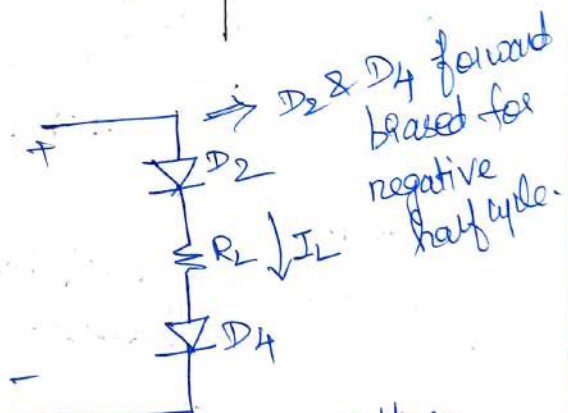 ⇒ D2 & D4 forward
biased for
negative
half cycle.
+
D2
RL ↓ IL
D4
-